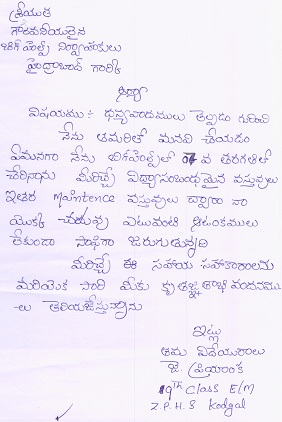 శ్రీయుత
గౌరవనీయులైన
బిగ్ హెల్ప్ నిర్వాహకులు
హైద్రాబాద్ గారికి
ఆర్యా
విషయము :- ధన్యవాదములు తెల్పుట గురించి
నేను తమరితో మనవి చేయడం
ఏమనగా నేను బిగ్‌హెల్ప్‌లో 07 వ తరగతిలో
చేరినాను మీరిచ్చే విద్యాసంబంధమైన వస్తువులు
ఇతర Maintence వస్తువుల ద్వారా నా
యొక్క చదువు ఎటువంటి ఆటంకములు
లేకుండా సాఫీగా జరుగుతున్నది
మీరిచ్చే ఈ సహాయ సహకారాలకు
మరియొక సారి మీకు కృతజ్ఞతాభి వందనము
-లు తెలియజేస్తున్నాను
ఇట్లు
తమ విధేయురాలు
జె. ప్రియాంక
9th Class E/M
Z.P.H.S Kodgal